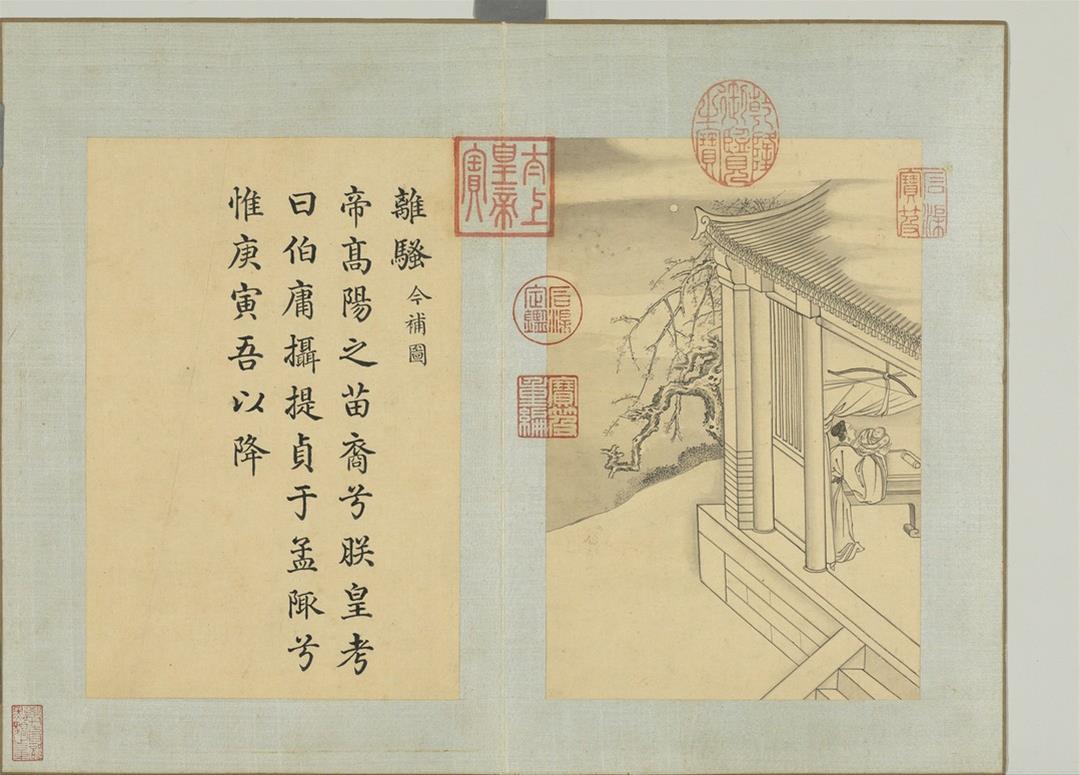 離騷 今補圖
帝高陽之苗裔兮朕皇考
曰伯庸攝提貞于孟陬兮
惟庚寅吾以降
太上皇帝之寶
乾隆御覽之寶
石渠定鑑
寶笈重編
石渠寶笈